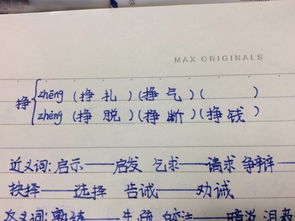 MAX ORIGINALS
挣 zhēng (挣扎)(挣气)(    )
zhèng (挣脱)(挣断)(挣钱)
近义词:启示——启发 乞求——请求 争辩——
抉择——选择 告诫——劝诫
反义词:熟悉——生疏